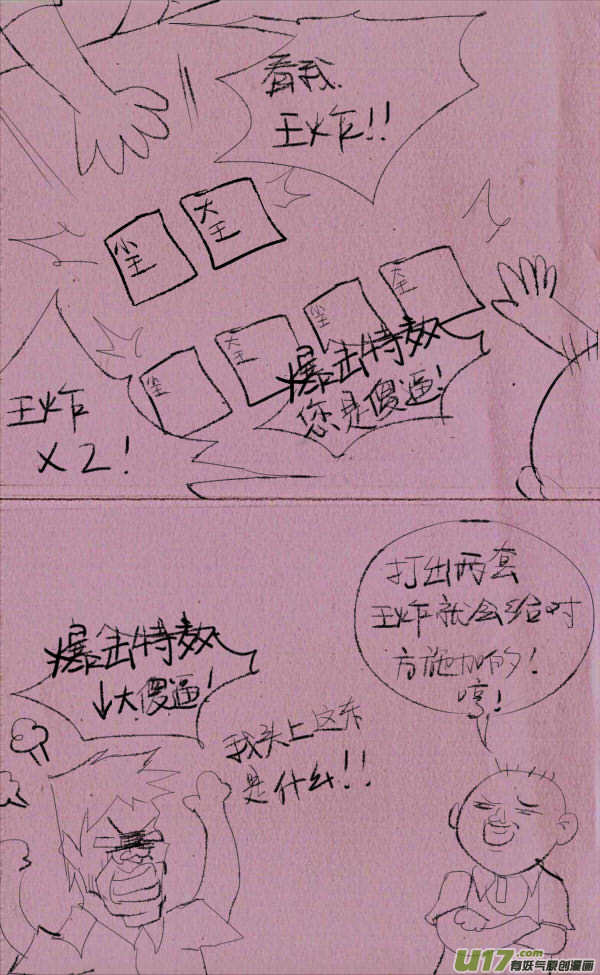 看我
王炸!!
小王
大王
小王
大王
小王
大王
王炸
X2!
爆击特效
您是傻逼!
打出两套
王炸就会给对
方施加的!
哼!
爆击特效
↓大傻逼!
我头上这东
是什么!!
U17.com
有妖气原创漫画